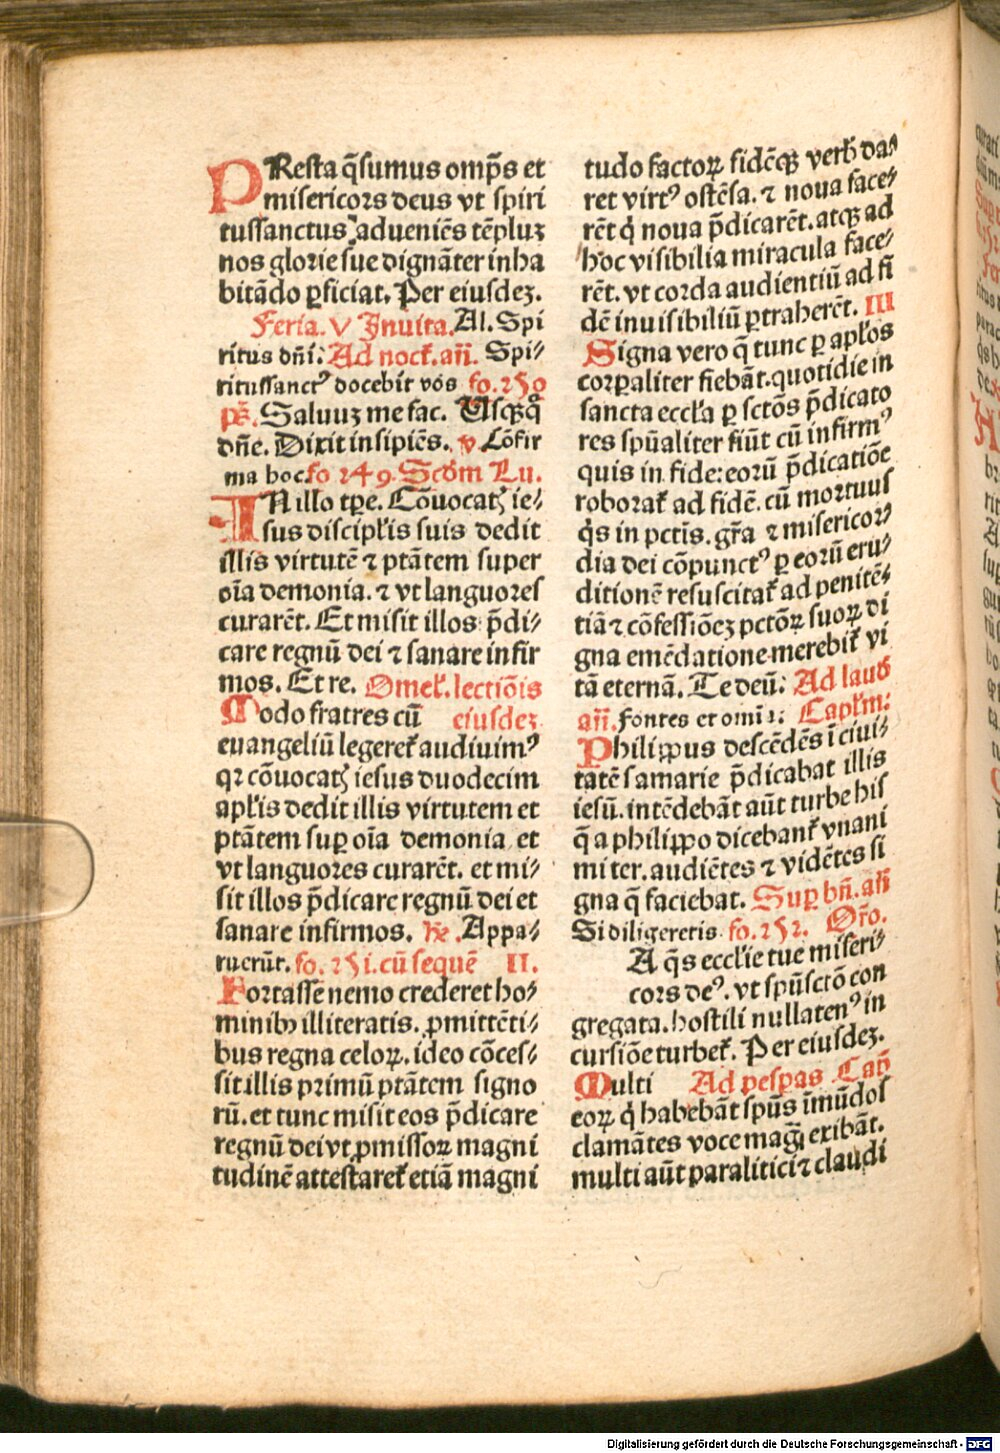 PResta q̄sumus omp̄s et
misericors deus vt spiri
tussanctus adueniēs tēpluꝫ
nos glorie sue dignāter inha
bitādo ꝑficiat. Per eiusdeꝫ.
Feria. V Inuita. Al. Spi
ritus dn̄i: Ad nock̄. an̄. Spi⸗
ritussanctꝰ docebit vos fo. 250
ps̄. Saluuꝫ me fac. Usqꝫq̊
dn̄e. Dixit insipiēs. v Cōfir
ma hoc fo 249. Scd̄m Lu.
IN illo tꝑe. Cōuocatꝭ ie⸗
sus discipl̄is suis dedit
illis virtutē ⁊ ptātem super
oīa demonia. ⁊ vt languores
curarēt. Et misit illos p̄di⸗
care regnū dei ⁊ sanare infir
mos. Et re. Omel̄. lectiōis
Modo fratres cū eiusdeꝫ
euangeliū legeret̄ audiuimꝰ
qꝛ cōuocatꝭ iesus duodecim
apl̄is dedit illis virtutem et
ptātem suꝑ oīa demonia et
vt languores curarēt. et mi⸗
sit illos p̄dicare regnū dei et
sanare infirmos. Appa⸗
ruerūt. fo. 251. cū sequē II.
Fortasse nemo crederet ho⸗
minibꝰ illiteratis. ꝓmittēti⸗
bus regna celoꝝ. ideo cōces⸗
sit illis primū ptātem signo
rū. et tunc misit eos p̄dicare
regnū dei vt ꝓmissoꝝ magni
tudinē attestaret̄ etiā magni
tudo factoꝝ fidēqꝫ verb̄ da⸗
ret virtꝰ ostēsa. ⁊ noua face⸗
rēt q̇ noua p̄dicarēt. atqꝫ ad
hoc visibilia miracula face⸗
rēt. vt corda audientiū ad fi
dē inuisibiliū ꝑtraherēt. III
Signa vero q̄ tunc ꝑ apl̄os
corꝑaliter fiebāt. quotidie in
sancta eccl̄a ꝑ sctōs p̄dicato
res spūaliter fiūt cū infirmꝰ
quis in fide: eorū p̄dicatiōe
roborat̄ ad fidē. cū mortuus
q̇s in pctīs. gr̄a ⁊ misericor⸗
dia dei cōpunctꝰ ꝑ eorū eru⸗
ditionē resuscitat̄ ad penitē⸗
tiā ⁊ cōfessiōeꝫ pctōꝝ suoꝝ di
gna emēdatione merebit̄ vi
tā eternā. Te deū: Ad laud̄
an̄. Fontes et omīa: Capl̄m:
Philippus descēdēs ī ciui⸗
tatē samarie p̄dicabat illis
iesū. intēdebāt aūt turbe his
q̄ a philippo dicebant̄ vnani
miter. audiētes ⁊ vidētes si
gna q̄ faciebat. Suꝑ bn̄. an̄
Si diligeretis fo. 252. Or̄o.
A q̄s ecclīe tue miseri⸗
cors deꝰ. vt spūsctō con
gregata. hostili nullatenꝰ in
cursiōe turbet̄. Per eiusdeꝫ.
Multi Ad vesꝑas Cap̄
eoꝝ q̇ habebāt spūs īmūdos
clamātes voce mag̅ exibāt.
multi aūt paralitici ⁊ claudi
Digitalisierung gefördert durch die Deutsche Forschungsgemeinschaft - DFG